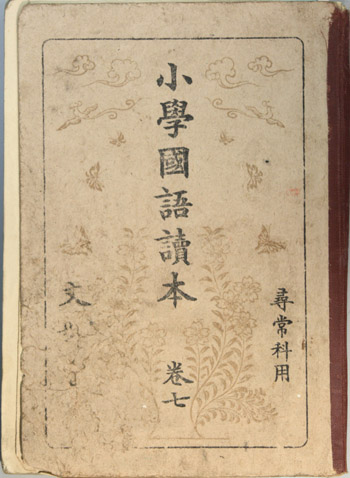 尋常科用
小學國語讀本 卷七
文